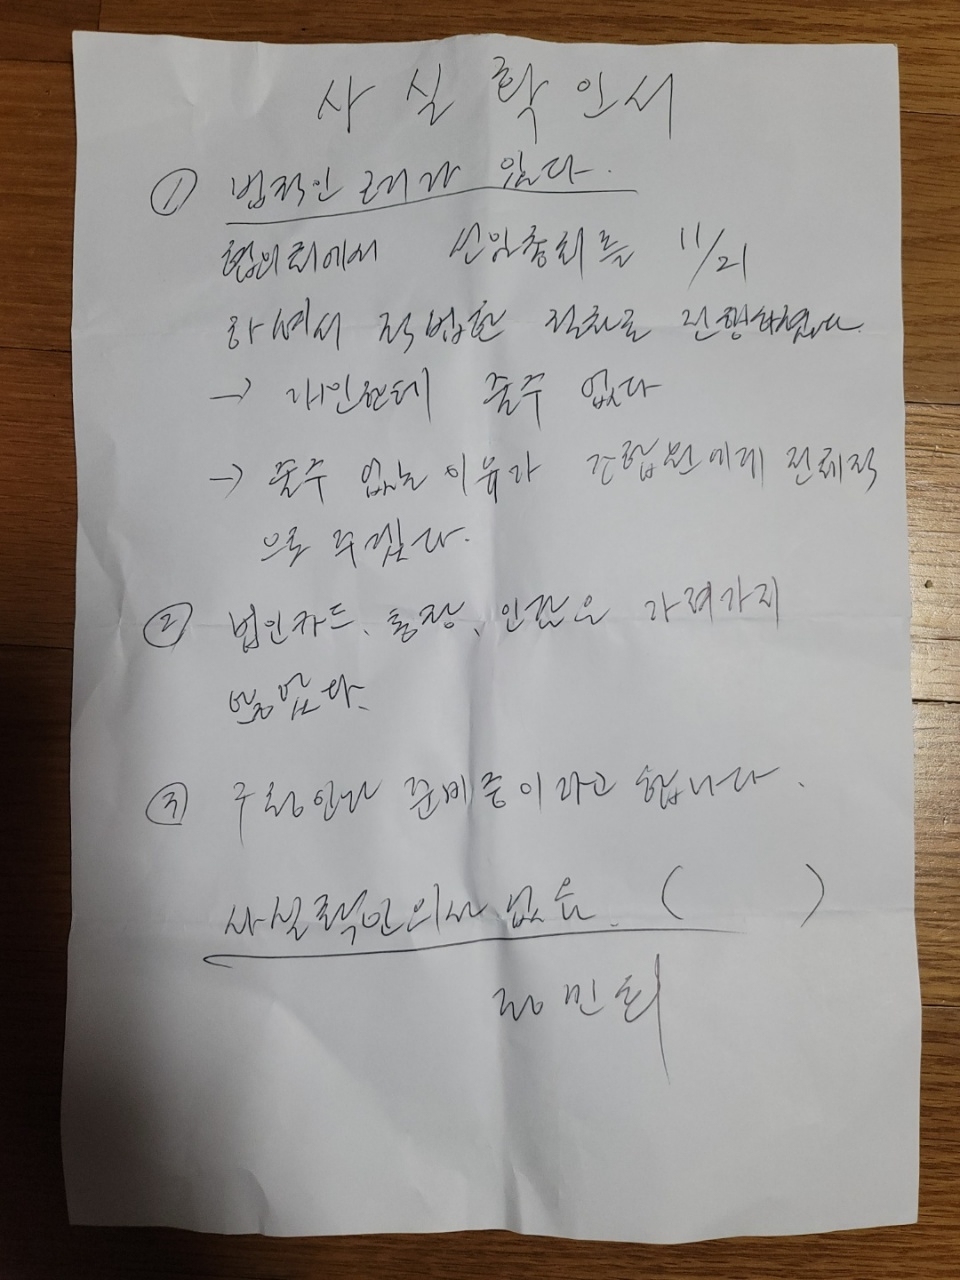 사실확인서
① 법적인 근거가 있다.
협의회에서 선임총회를 11/21
하면서 적법한 절차로 진행하였다.
→ 개인한테 줄수 없다
→ 줄수 없는 이유가 조합원에게 전체적
으로 주겠다.
② 법인카드, 통장, 인감은 가져가지
③ 준비중이라고 합니다.
사실확인의사 없음. ( )
민희